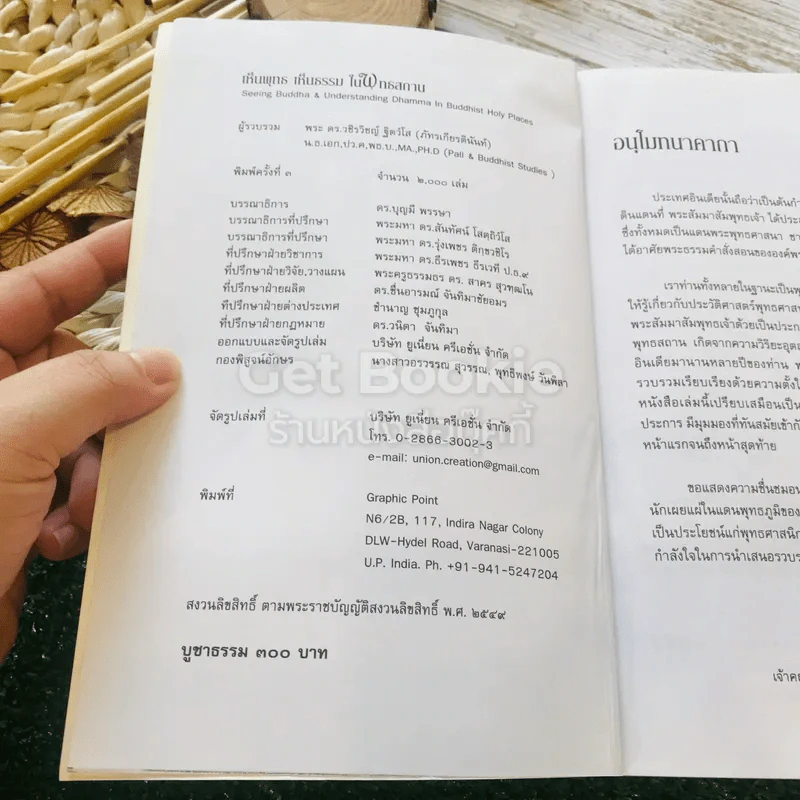 เห็นพุทธ เห็นธรรม ในพุทธสถาน
Seeing Buddha & Understanding Dhamma In Buddhist Holy Places
ผู้รวบรวม พระ ดร.วชิรวิชญ์ ฐิตวํโส (ภัทรเกียรตินันท์)
น.ธ.เอก,ปว.ค,พธ.บ.,MA.,PH.D (Pali & Buddhist Studies )
พิมพ์ครั้งที่ ๓ จำนวน ๒,๐๐๐ เล่ม
บรรณาธิการ ดร.บุญมี พรรษา
บรรณาธิการที่ปรึกษา พระมหา ดร.สันทัศน์ โสตฺถิวํโส
บรรณาธิการที่ปรึกษา พระมหา ดร.รุ่งเพชร ติกฺขวชิโร
ที่ปรึกษาฝ่ายวิชาการ พระมหา ดร.ธีรเพชร ธีรเวที ป.ธ.๙
ที่ปรึกษาฝ่ายวิจัย,วางแผน พระครูธรรมธร ดร. สาคร สุวฑฺฒโน
ที่ปรึกษาฝ่ายผลิต ดร.ชื่นอารมณ์ จันทิมาชัยอมร
ที่ปรึกษาฝ่ายต่างประเทศ ชำนาญ ชุมภูกุล
ที่ปรึกษาฝ่ายกฎหมาย ดร.วนิดา จันทิมา
ออกแบบและจัดรูปเล่ม บริษัท ยูเนี่ยน ครีเอชั่น จำกัด
กองพิสูจน์อักษร นางสาวอรวรรณ สุวรรณ, พุทธิพงษ์ วันพิลา
Get Bookie
ร้านหนังสือบุ๊คกี้
จัดรูปเล่มที่ บริษัท ยูเนี่ยน ครีเอชั่น จำกัด
โทร. 0-2866-3002-3
e-mail: union.creation@gmail.com
พิมพ์ที่ Graphic Point
N6/2B, 117, Indira Nagar Colony
DLW-Hydel Road, Varanasi-221005
U.P. India. Ph. +91-941-5247204
สงวนลิขสิทธิ์ ตามพระราชบัญญัติสงวนลิขสิทธิ์ พ.ศ. ๒๕๔๙
บูชาธรรม ๓๐๐ บาท
อนุโมทนาคาถา
ประเทศอินเดียนั้นถือว่าเป็นต้นกำ
ดินแดนที่ พระสัมมาสัมพุทธเจ้า ได้ประ
ซึ่งทั้งหมดเป็นแดนพระพุทธศาสนา
ได้อาศัยพระธรรมคำสั่งสอนขององค์พร
เราท่านทั้งหลายในฐานะเป็นพุ
ให้รู้เกี่ยวกับประวัติศาสตร์พุทธศาส
พระสัมมาสัมพุทธเจ้าด้วยเป็นประกา
พุทธสถาน เกิดจากความวิริยะอุตส
อินเดียมานานหลายปีของท่าน
รวบรวมเรียบเรียงด้วยความตั้งใ
หนังสือเล่มนี้เปรียบเสมือนเป็น
ประการ มีมุมมองที่ทันสมัยเข้ากั
หน้าแรกจนถึงหน้าสุดท้าย
ขอแสดงความชื่นชมอน
นักเผยแผ่ในแดนพุทธภูมิของ
เป็นประโยชน์แก่พุทธศาสนิก
กำลังใจในการนำเสนอรวบร